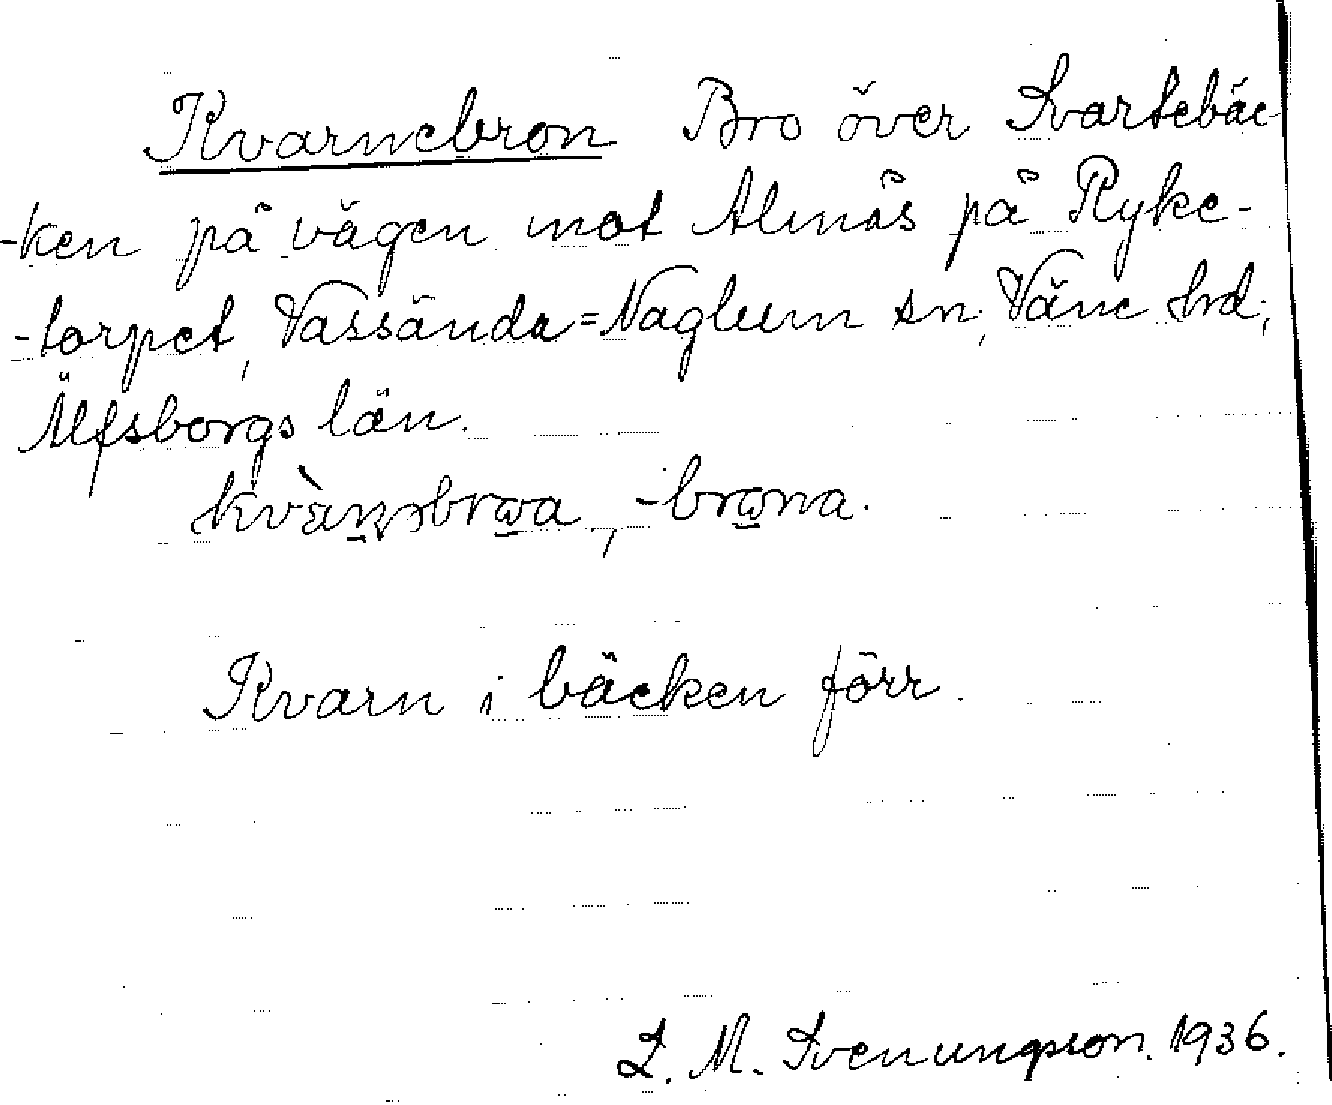 Kvarnebron Bro över Svartebäc-
-ken på vägen mot Almäs på Ryke-
-torpet, Vassända=Naglum sn, Väne hd,
Älfsborgs län.
kvàṉəbrω̲a, -brω̲na.
Kvarn i bäcken förr.
L. M. Svenungsson. 1936.